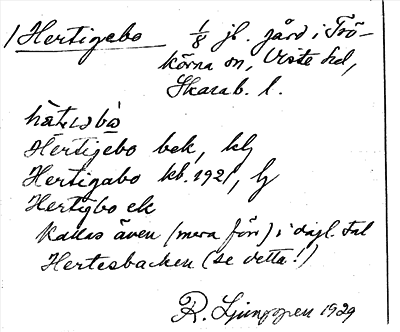 / Hertigebo 1/8 jb. gård i Trö-
körna sn, Viste hd,
Skarab. l.
Hertigebo bek, hj
Hertigabo kb. 1921, hj
Hertigbo ek
Kallas även (mera förr) i dagl. tal
Hertesbacken (se detta!)
R. Ljunggren 1929